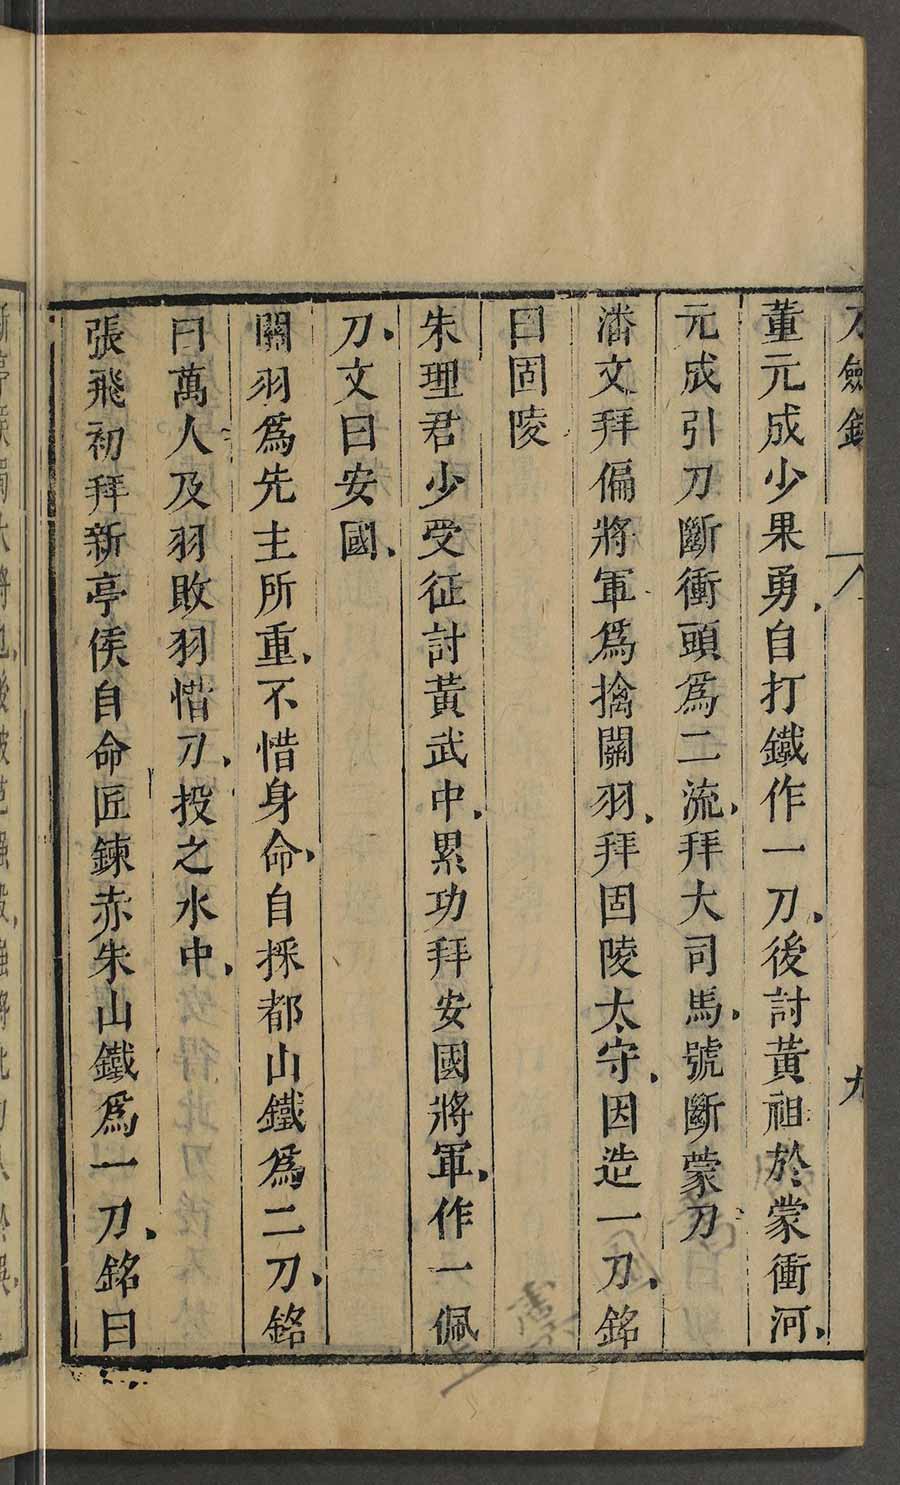 刀劍錄 九
董元成少果勇自打鐵作一刀後討黃祖於蒙衝河
元成引刀斷衝頭爲二流拜大司馬號斷蒙刀
潘文拜偏將軍爲擒關羽拜固陵太守因造一刀銘
曰固陵
朱理君少受征討黃武中累功拜安國將軍作一佩
刀文曰安國
關羽爲先主所重不惜身命自採都山鐵爲二刀銘
曰萬人及羽敗羽惜刀投之水中
張飛初拜新亭侯自命匠鍊赤朱山鐵爲一刀銘曰